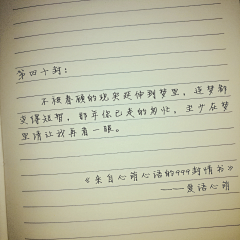 第四十封：
不被眷顾的现实延伸到梦里，连梦都
变得短暂，那年你已走的匆忙，至少在梦
里请让我再看一眼。
《来自心萌心语的999封情书》
——莫语心萌